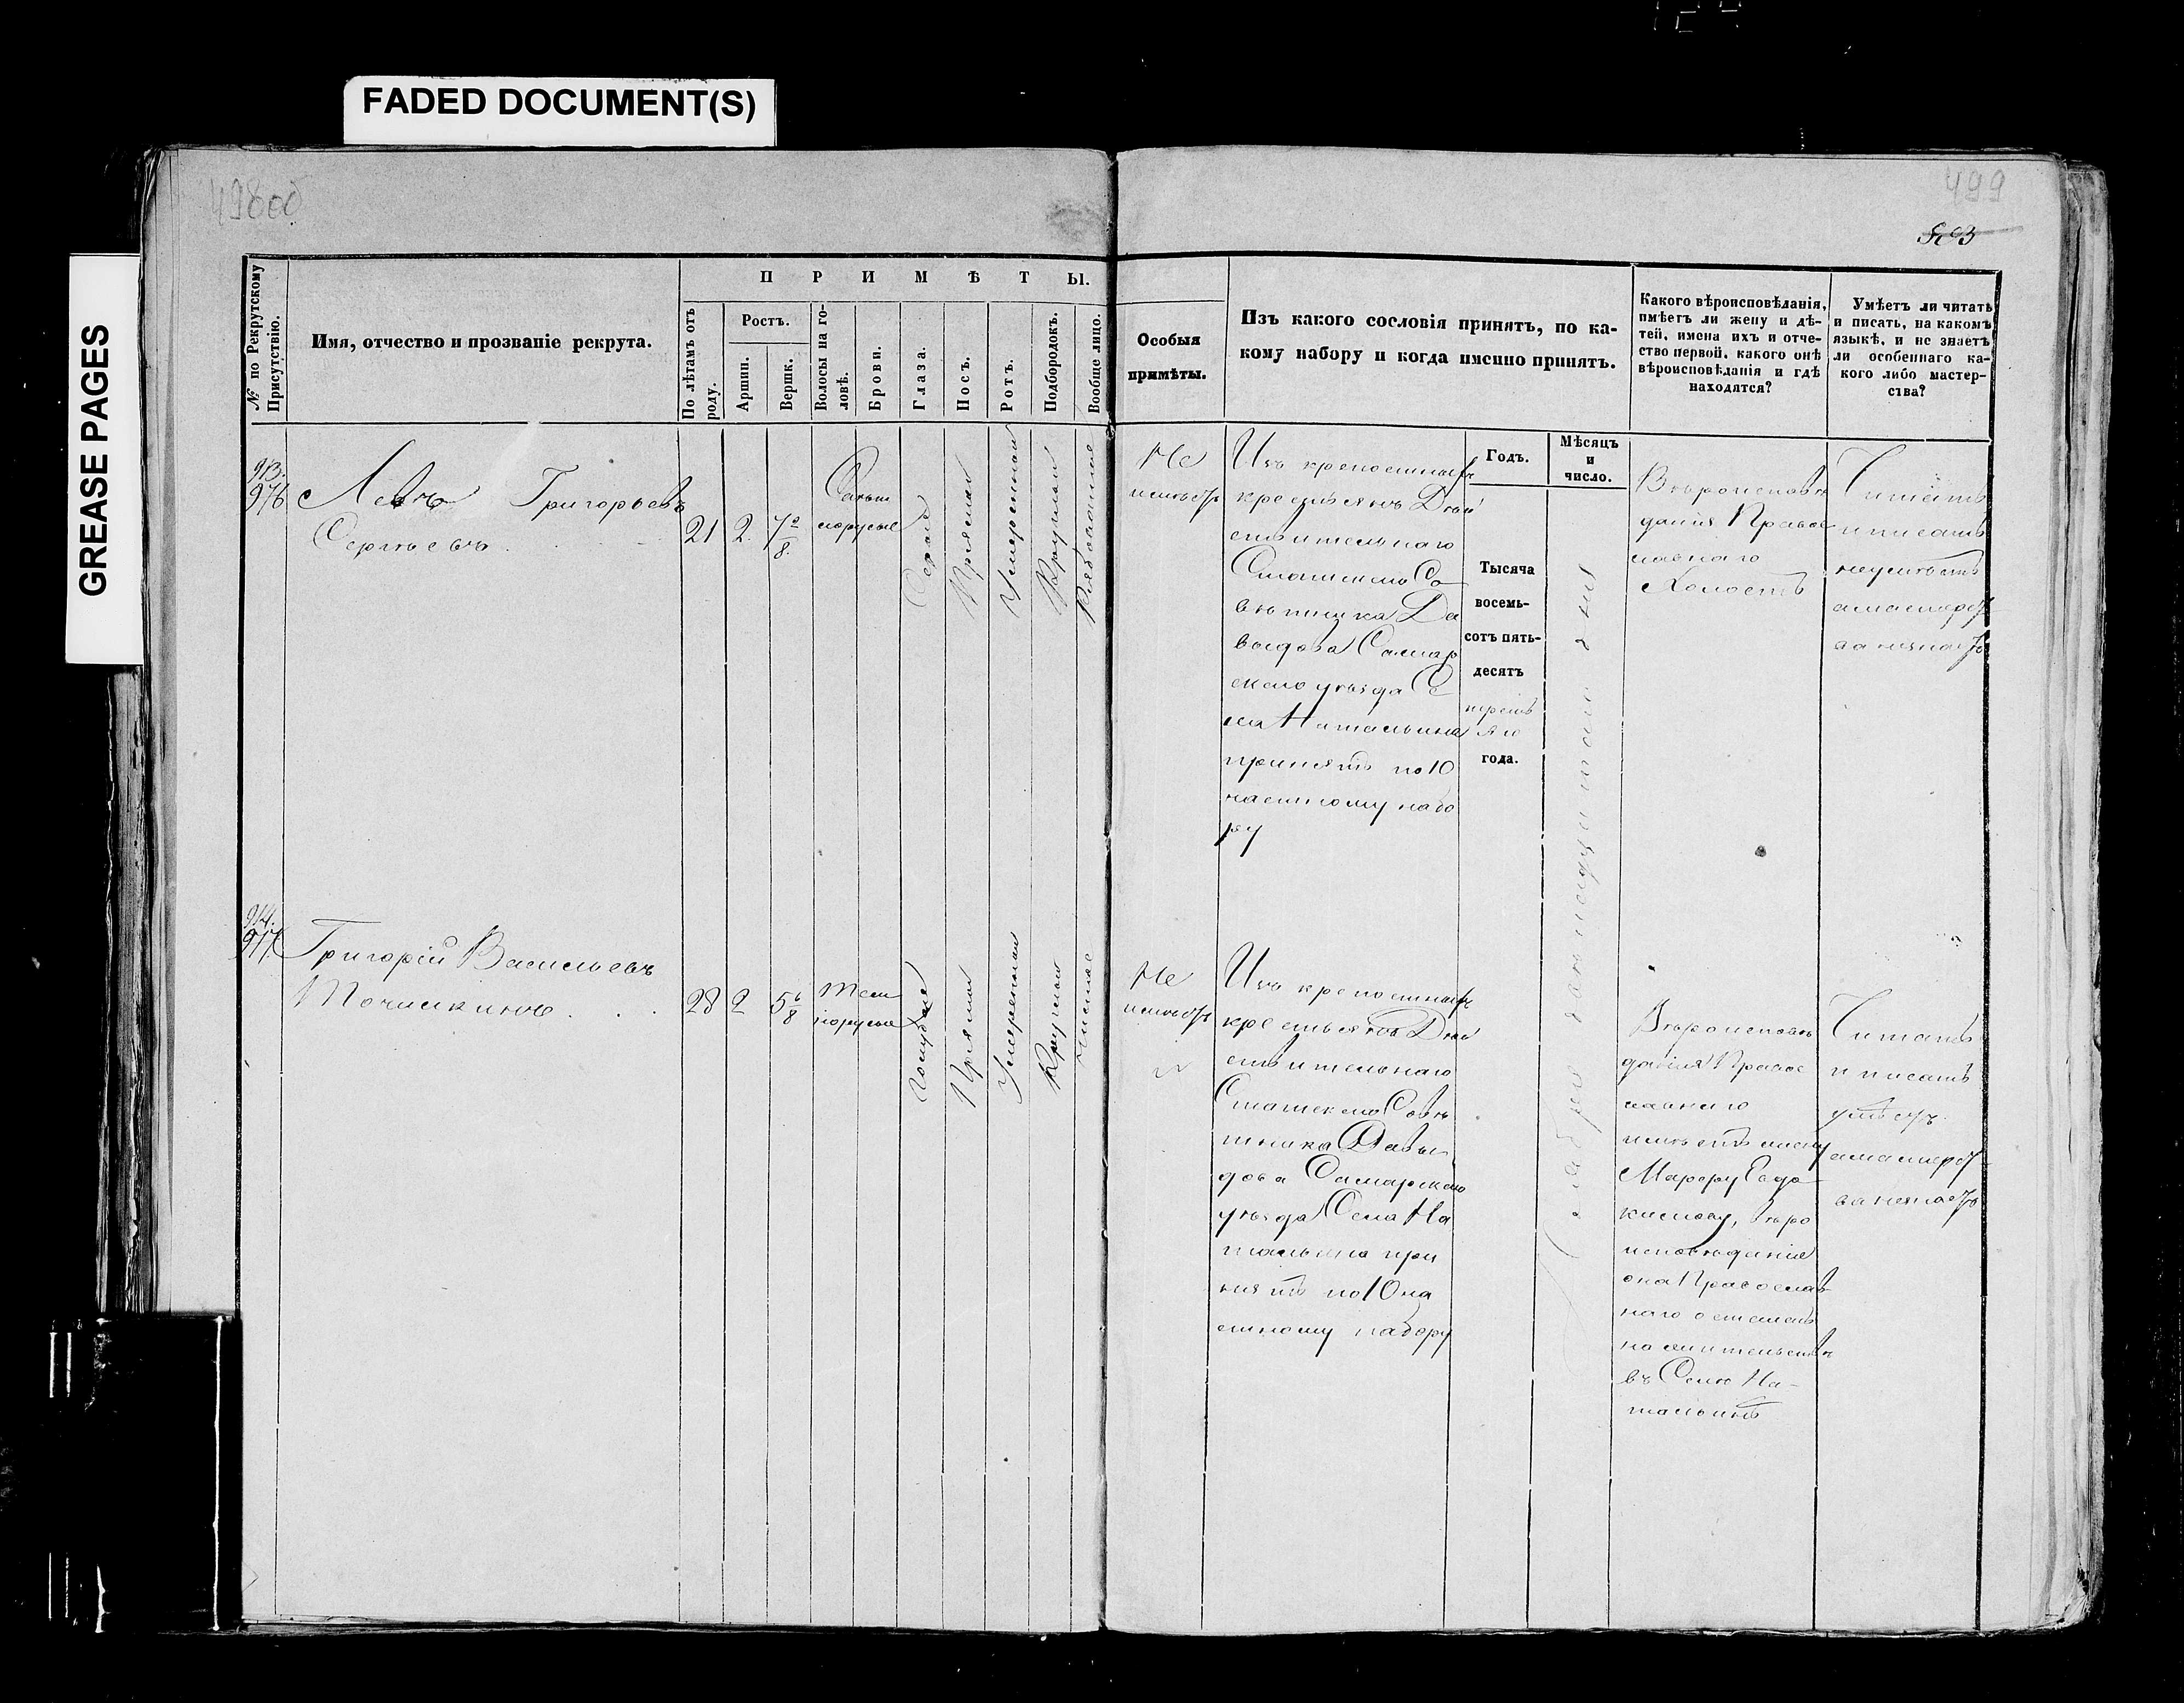 FADED DOCUMENT(S)
GREASE PAGES
498об
499
№ по Рекрутскому Присутствію.
Имя, отчество и прозваніе рекрута.
П Р И М Ѣ Т Ы.
По лѣтамъ отъ роду.
Ростъ.
Аршин.
Вершк.
Волосы на го-
ловѣ.
Брови.
Глаза.
Носъ.
Ротъ.
Подбородокъ.
Вообще лицо.
Особыя
примѣты.
Изъ какого сословія принятъ, по ка-
кому набору и когда именно принятъ.
Какого вѣроисповѣданія,
имѣетъ ли жену и дѣ-
тей, имена ихъ и отче-
ство первой, какого онѣ
вѣроисповѣданія и гдѣ
находятся?
Умѣетъ ли читать
и писать, на какомъ
языкѣ, и не знаетъ
ли особеннаго ка-
кого либо мастер-
ства?
Годъ.
Мѣсяцъ
и
число.
913.
976
Левъ Григорьевъ
Сергѣевъ
21 2 7 2/8
Свѣтл
орусые
Серые
Прямой
Умеренной
Круглой
Рябоватое
Не
имѣетъ
Изъ крепостныхъ
крестьянъ Дѣй
ствительнаго
Статскаго Со
вѣтника Да
выдова Самар
скаго уѣзда Се
ла Натальина
принятъ по 10
частному набо
ру
Тысяча
восемь-
сотъ пять-
десятъ
третья
го
года.
Вѣроисповѣ
данія Правос
лавнаго
Холостъ
Читать
и писать
неумѣетъ
а мастерст
ва незнаетъ
914.
977.
Григорій Васильевъ
Точилкинъ
28 2 5 6/8
Тем
норусые
Голубые
Прямой
Умеренной
Круглой
Чистое
Не
имѣетъ
Изъ крепостныхъ
крестьянъ Дѣй
ствительнаго
Статскаго Совѣ
тника Давы
дова Самарскаго
уѣзда Села На
тальина при
нятъ по 10 ча
стному набору
Вѣроисповѣ
данія Правос
лавнаго
имѣетъ жену
Марфу Евдо
кимову, вѣро
исповѣданія
она Православ
наго
на жительствѣ
въ Селѣ На-
тальинѣ
Читать
и писать
умѣетъ
а мастерст
ва незнаетъ